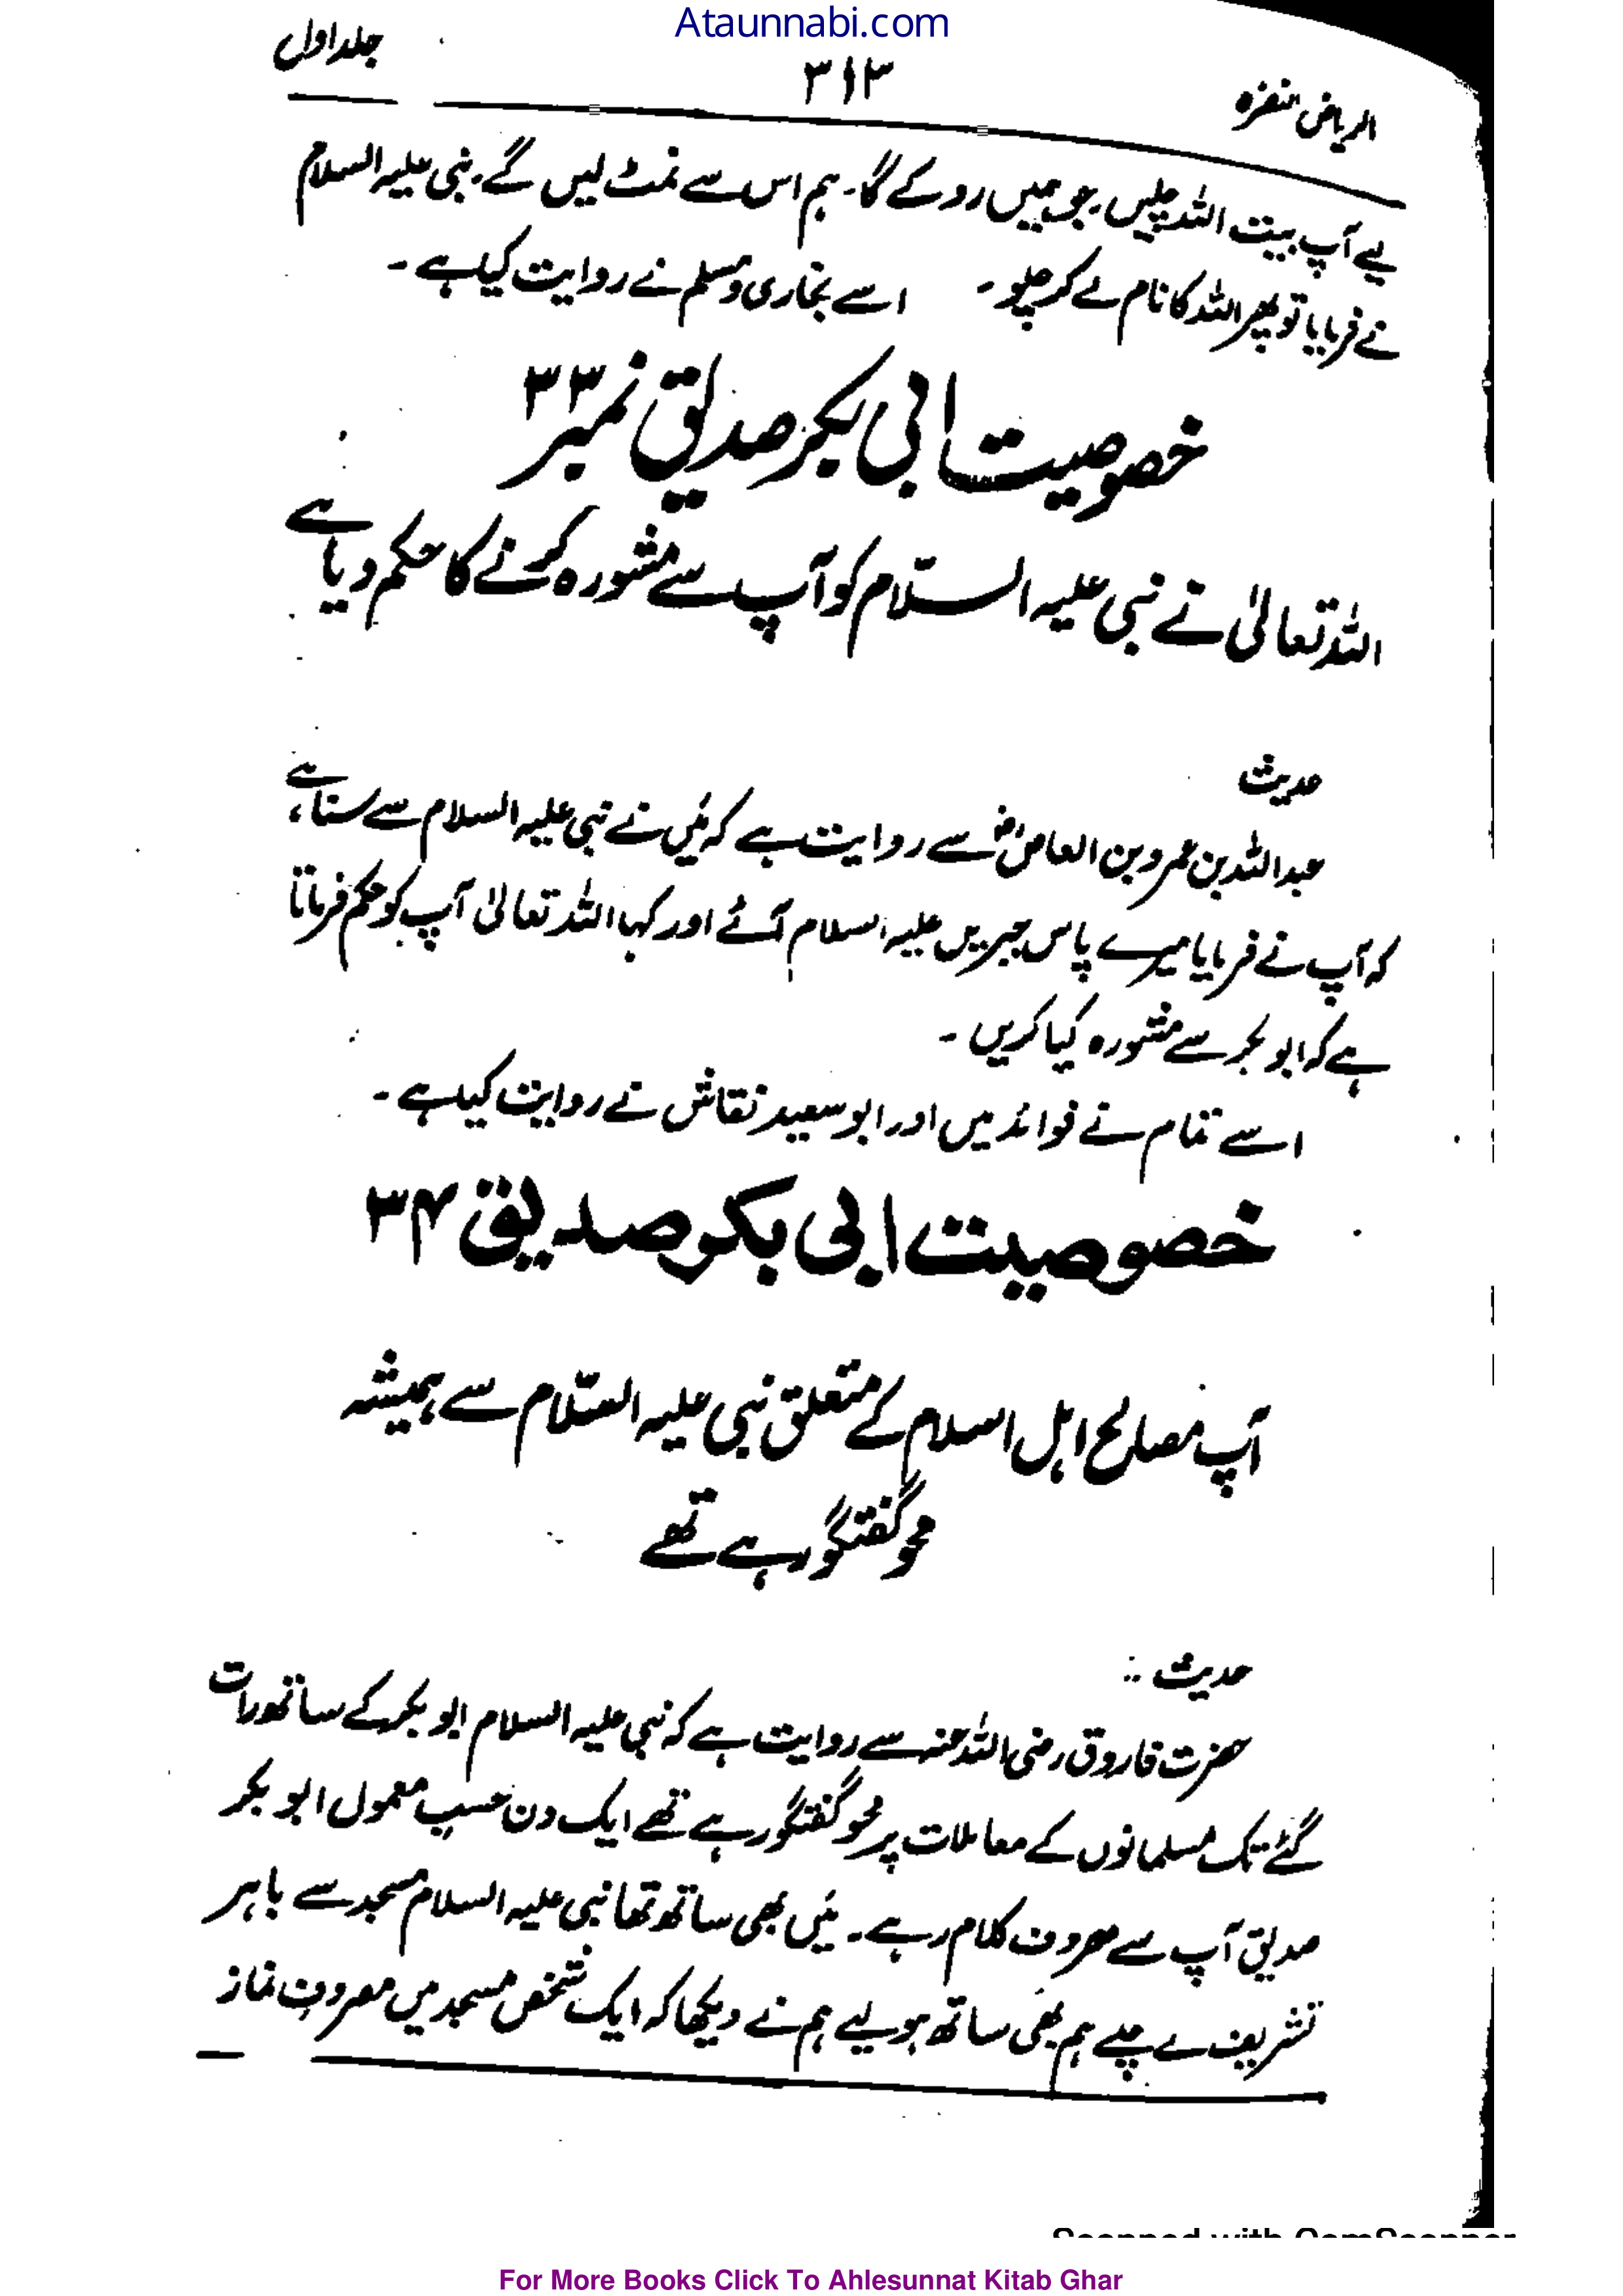 Ataunnabi.com
الریاض النضرہ ۳۱۳ جلد اول
لیے آپ بیت اللہ چلیں، جو ہمیں روکے گا۔ ہم اس سے نمٹ لیں گے۔ نبی علیہ السلام
نے فرمایا تو پھر اللہ کا نام لے کر چلو۔ اسے بخاری و مسلم نے روایت کیا ہے۔
خصوصیت ابی بکر صدیق نمبر ۳۳
اللہ تعالیٰ نے نبی علیہ السلام کو آپ سے مشورہ کرنے کا حکم دیا ہے
حدیث
عبداللہ بن عمرو بن العاصؓ سے روایت ہے کہ میں نے نبی علیہ السلام سے سنا ہے،
کہ آپ نے فرمایا میرے پاس جبریل علیہ السلام آئے اور کہا اللہ تعالیٰ آپ کو حکم فرماتا
ہے کہ ابو بکر سے مشورہ کیا کریں۔
اسے تمام نے فوائد میں اور ابو سعید نقاش نے روایت کیا ہے۔
خصوصیت ابی بکر صدیق ۳۴
آپ مصالح اہل اسلام کے متعلق نبی علیہ السلام سے ہمیشہ
محو گفتگو رہے تھے
حدیث :-
حضرت فاروق رضی اللہ عنہ سے روایت ہے کہ نبی علیہ السلام ابو بکر کے ساتھ رات
گئے تک مسلمانوں کے معاملات پر محو گفتگو رہے تھے ایک دن حسبِ معمول ابو بکر
صدیق آپ سے مصروف کلام رہے۔ میں بھی ساتھ تھا نبی علیہ السلام مسجد سے باہر
تشریف لے چلے ہم بھی ساتھ ہو لیے ہم نے دیکھا کہ ایک شخص مسجد میں مصروفِ نماز
Scanned with CamScanner
For More Books Click To Ahlesunnat Kitab Ghar